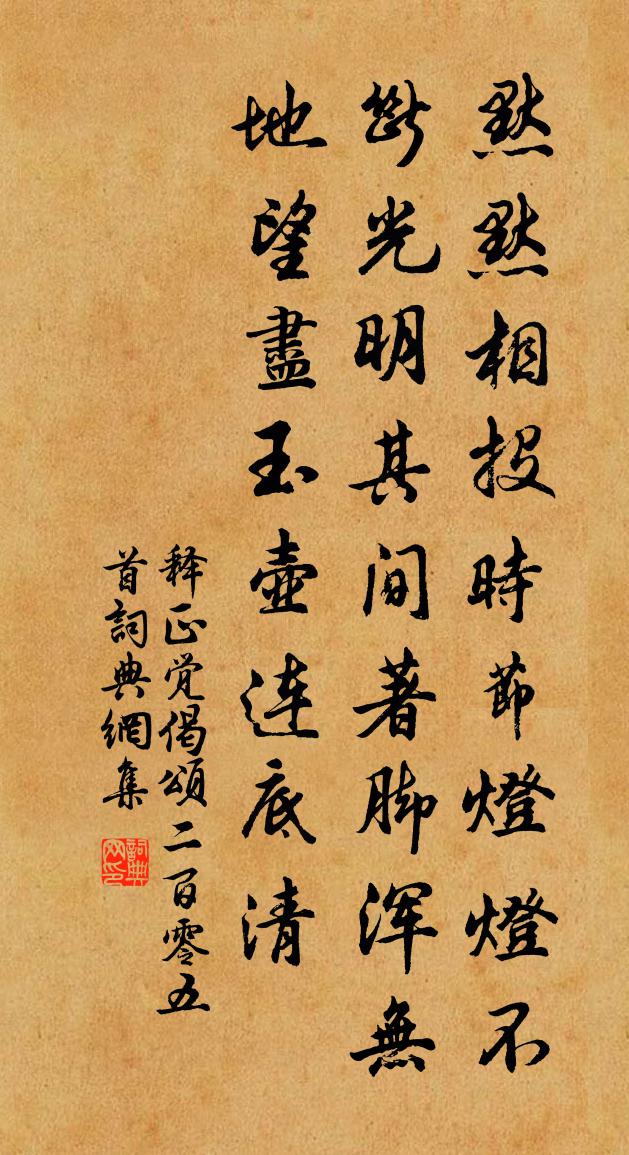 默默相投時節燈燈不
斷光明其间著脚浑無
地望盡玉壺连底清
释正觉偈頌二百零五
首詞典網集
詞典网印